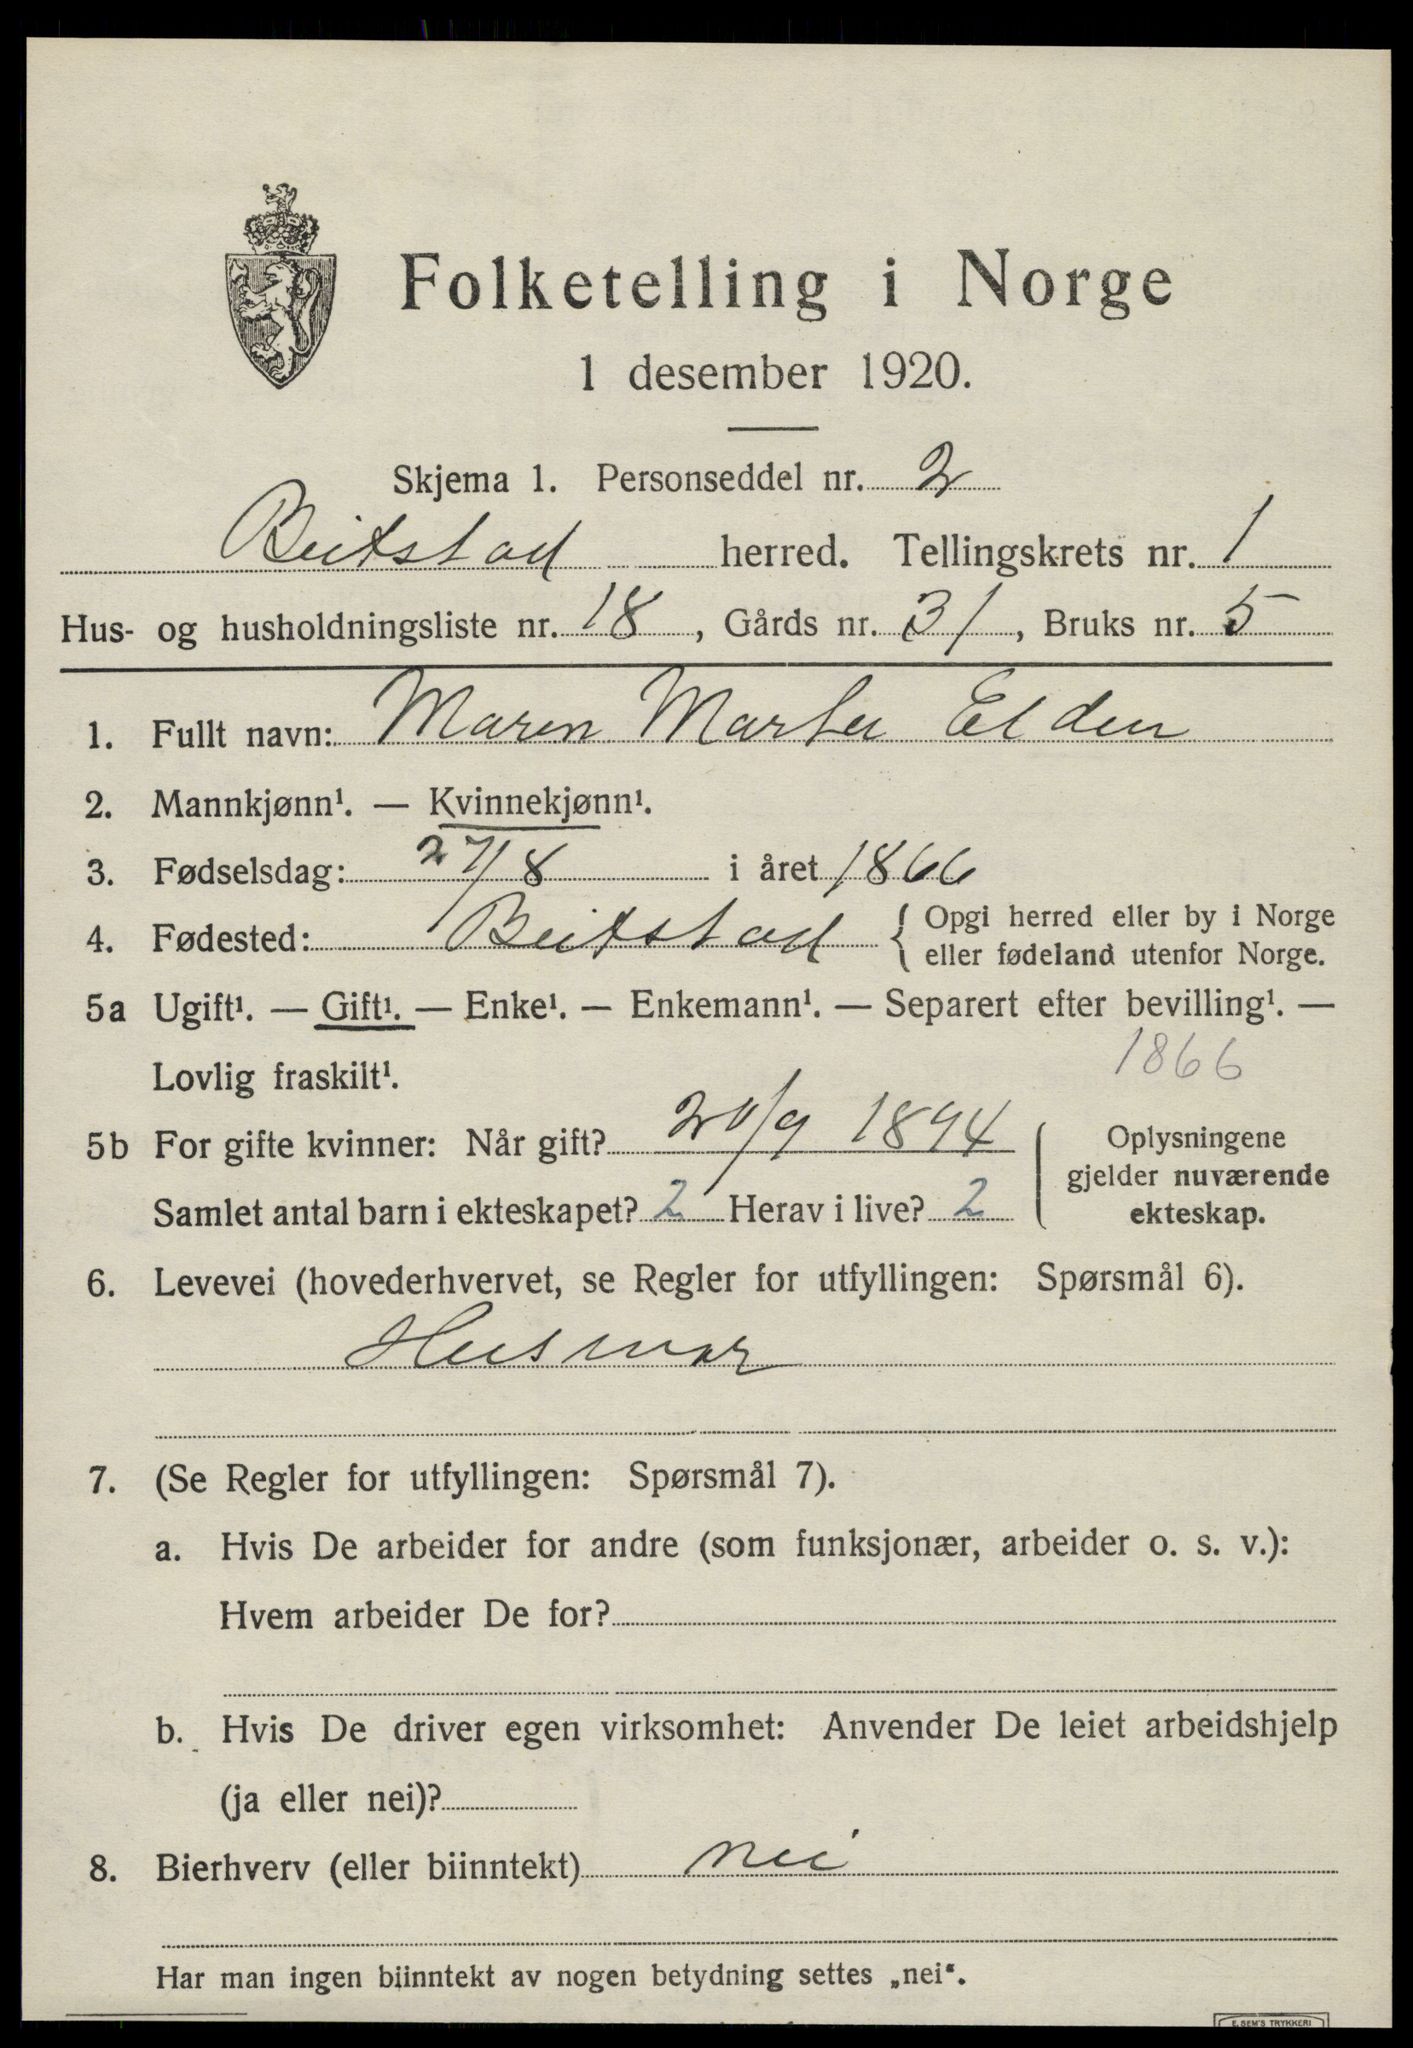 Folketelling i Norge
1 desember 1920.
Skjema 1. Personseddel nr. 2
Beitstad herred. Tellingskrets nr. 1
Hus- og husholdningsliste nr. 18, Gårds nr. 31, Bruks nr. 5
1. Fullt navn: Maren Marta Elden
2. Mannkjønn¹. — Kvinnekjønn¹.
3. Fødselsdag: 27/8 i året 1866
4. Fødested: Beitstad { Opgi herred eller by i Norge
eller fødeland utenfor Norge.
5a Ugift¹. — Gift¹. — Enke¹. — Enkemann¹. — Separert efter bevilling¹. —
Lovlig fraskilt¹. 1866
5b For gifte kvinner: Når gift? 20/9 1894
Samlet antal barn i ekteskapet? 2 Herav i live? 2
( Oplysningene
gjelder nuværende
ekteskap.
6. Levevei (hovederhvervet, se Regler for utfyllingen: Spørsmål 6).
Husmor
7. (Se Regler for utfyllingen: Spørsmål 7).
a. Hvis De arbeider for andre (som funksjonær, arbeider o. s. v.):
Hvem arbeider De for?
b. Hvis De driver egen virksomhet: Anvender De leiet arbeidshjelp
(ja eller nei)?
8. Bierhverv (eller biinntekt) nei
Har man ingen biinntekt av nogen betydning settes „nei".
E. SEM'S TRYKKERI